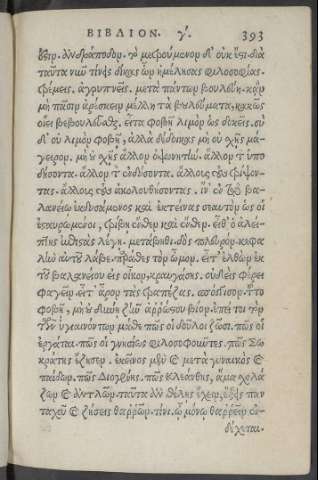 ΒΙΒΛΙΟΝ. γ´. 393
ἀνδράποδον. τὸ μετρούμενον δ' οὐκ ἔτι. διὰ
ταῦτα νῦν τίνῃς δίκας ὧν ἠμέλησας φιλοσοφίας.
τρέμεις, ἀγρυπνεῖς. μετὰ πάντων βουλεύῃ. κἂν
μὴ πᾶσιν ἀρέσκειν μέλλῃ τὰ βουλεύματα, κακῶς
οἴει βεβουλεῦσθαι. εἶτα φοβῇ λιμὸν ὡς δοκεῖς. σὺ
δ' οὐ λιμὸν φοβῇ, ἀλλὰ δέδοικας μὴ οὐ σχῇς μά-
γειρον. μὴ οὐ σχῇς ἄλλον ὀψωνητήν. ἄλλον τὸν ὑπο
δήσοντα. ἄλλον τὸν ἐνδύσοντα. ἄλλους τοὺς τρίψον-
τας. ἄλλους τοὺς ἀκολουθήσοντας. ἵν' ἐν τῷ βα-
λανείῳ ἐκδυσάμενος καὶ ἐκτείνας σεαυτὸν ὡς οἱ
ἐσταυρωμένοι, τρίβῃ ἔνθεν καὶ ἔνθεν. εἶθ' ὁ ἀλεί-
πτης ἐπιστὰς λέγῃ. μετάβηθι. δὸς πλευρόν. κεφα-
λὴν αὐτοῦ λάβε. παράθες τὸν ὦμον. εἶτ' ἐλθὼν ἐκ
τοῦ βαλανείου εἰς οἶκον, κραυγάσῃς. οὐδεὶς φέρει
φαγεῖν. εἶτ' ἆρον τὰς τραπέζας. σπόγγισον. τοῦτο
φοβῇ, μὴ οὐ δύνῃ ζῆν ἀρρώστου βίον. ἐπεί τοι τὸν
τῶν ὑγιαινόντων μάθε πῶς οἱ δοῦλοι ζῶσι. πῶς οἱ
ἐργάται. πῶς οἱ γνησίως φιλοσοφοῦντες. πῶς Σω
κράτης ἔζησεν. ἐκεῖνος μὲν καὶ μετὰ γυναικὸς καὶ
παίδων. πῶς Διογένης. πῶς Κλεάνθης, ἅμα σχολά
ζων καὶ ἀντλῶν. ταῦτα ἂν θέλῃς ἔχειν, ἕξεις παν
ταχοῦ καὶ ζήσεις θαρρῶν. τίνι. ᾧ μόνῳ θαρρεῖν ἐν-
δέχεται.